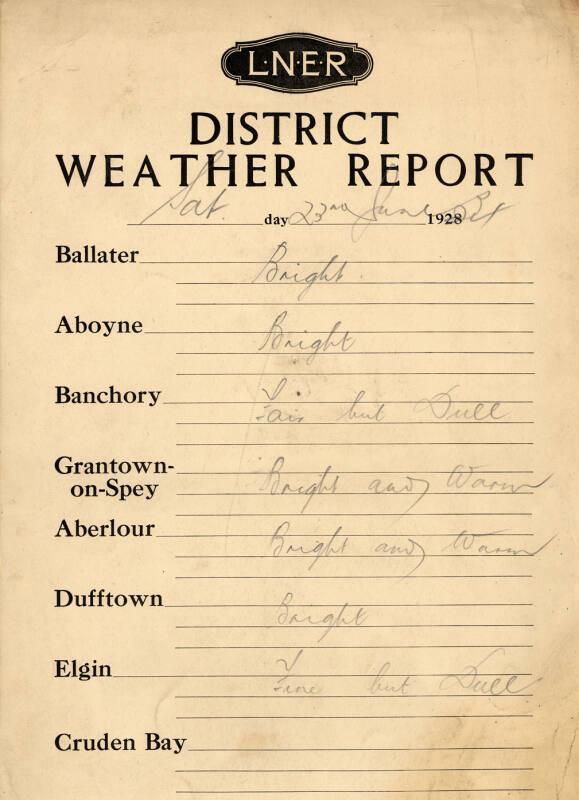 L·N·E·R
DISTRICT
WEATHER REPORT
Sat. day 23rd June 1928
Ballater Bright.
Aboyne Bright
Banchory Fair but Dull
Grantown-
on-Spey Bright and Warm
Aberlour Bright and Warm
Dufftown Bright
Elgin Fine but Dull
Cruden Bay